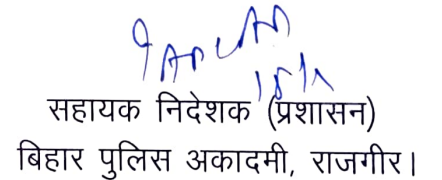 सहायक निदेशक (प्रशासन)
बिहार पुलिस अकादमी, राजगीर।